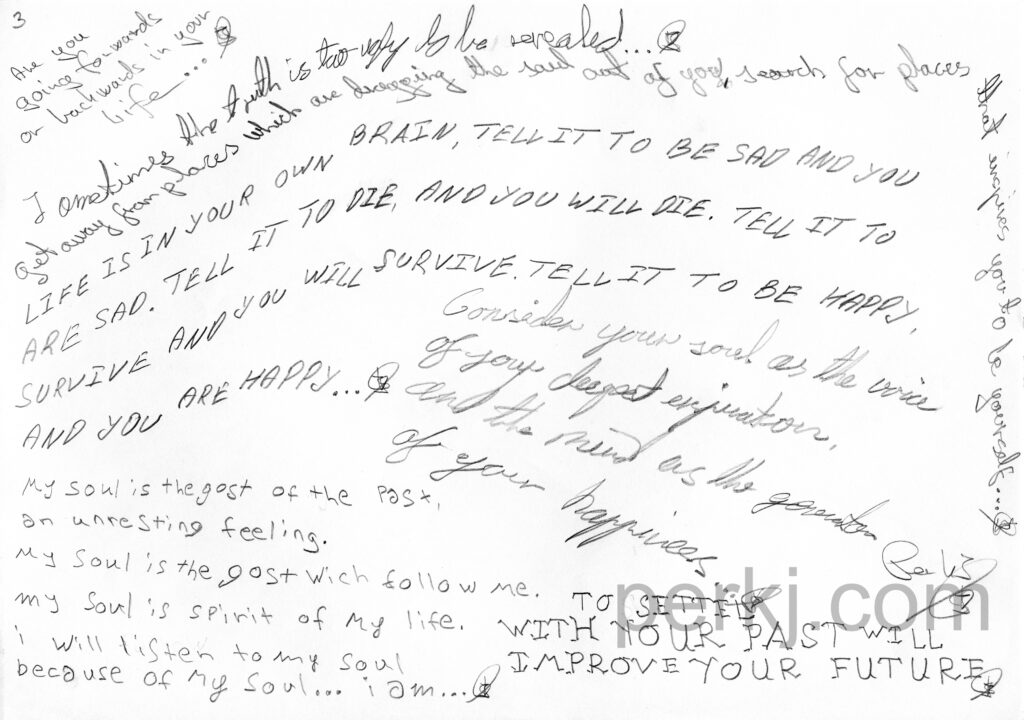 3
Are you
going forwards
or backwards in your
life...
Sometimes the truth is too ugly to be revealed...
Get away from places which are dragging the soul out of you, search for places
that inspire you to be yourself...
LIFE IS IN YOUR OWN BRAIN, TELL IT TO BE SAD AND YOU
ARE SAD. TELL IT TO DIE, AND YOU WILL DIE. TELL IT TO
SURVIVE AND YOU WILL SURVIVE. TELL IT TO BE HAPPY,
AND YOU ARE HAPPY...
Consider your soul as the voice
of your deepest
and the mind as the
of your happiness...
My soul is the gost of the past,
an unresting feeling.
My soul is the gost wich follow me.
my soul is spirit of my life.
i will listen to my soul
because of my soul... i am...
TO SETTLE
WITH YOUR PAST WILL
IMPROVE YOUR FUTURE
perkj.com